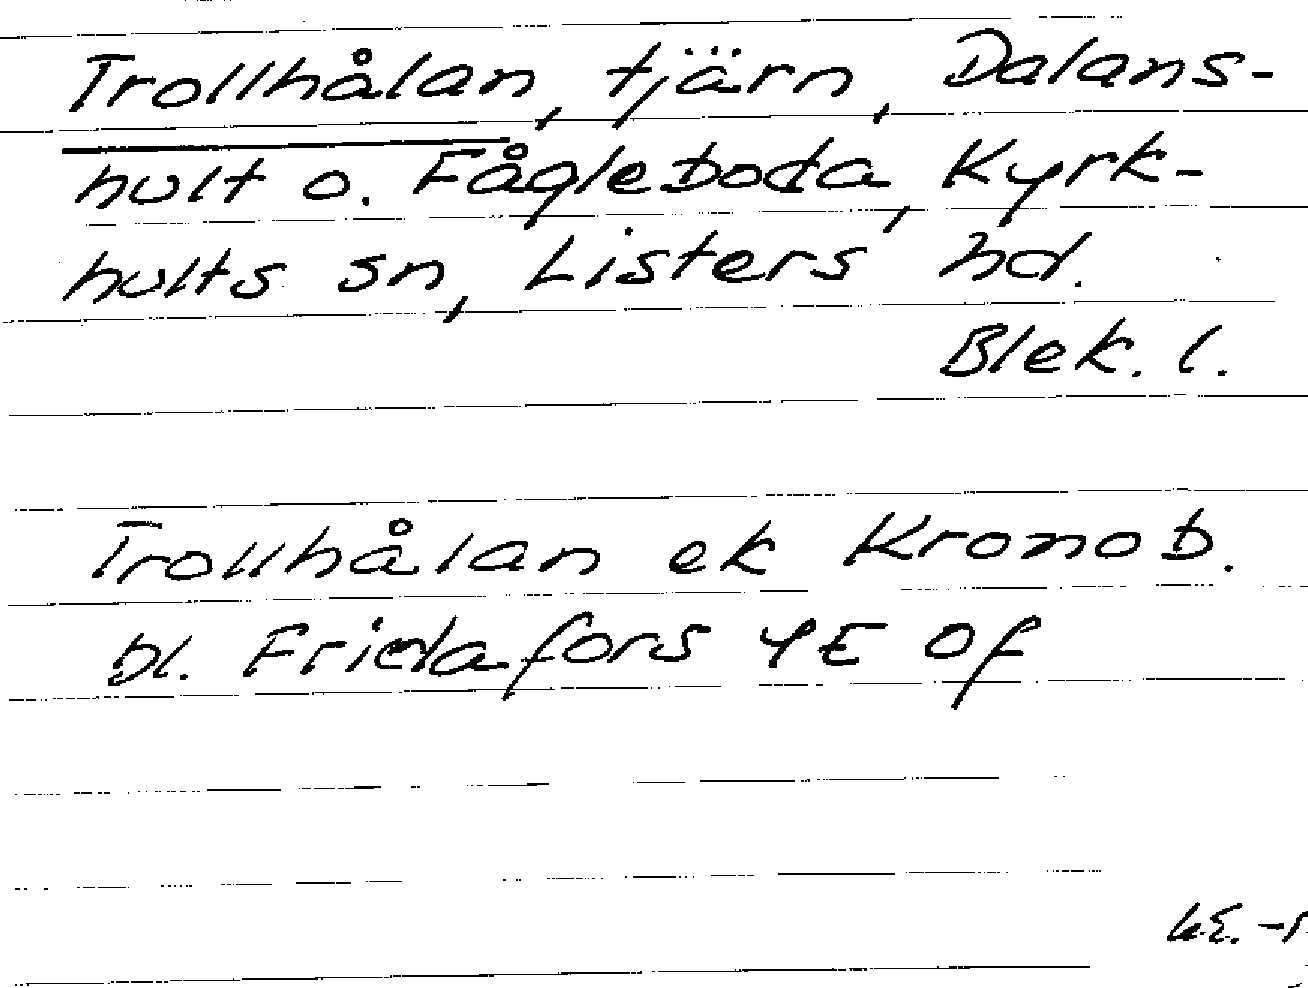 Trollhålan, tjärn, Dalans-
hult o. Fågleboda, Kyrk-
hults sn, Listers hd.
Blek. l.
Trollhålan ek Kronob.
bl. Fridafors 4E Of